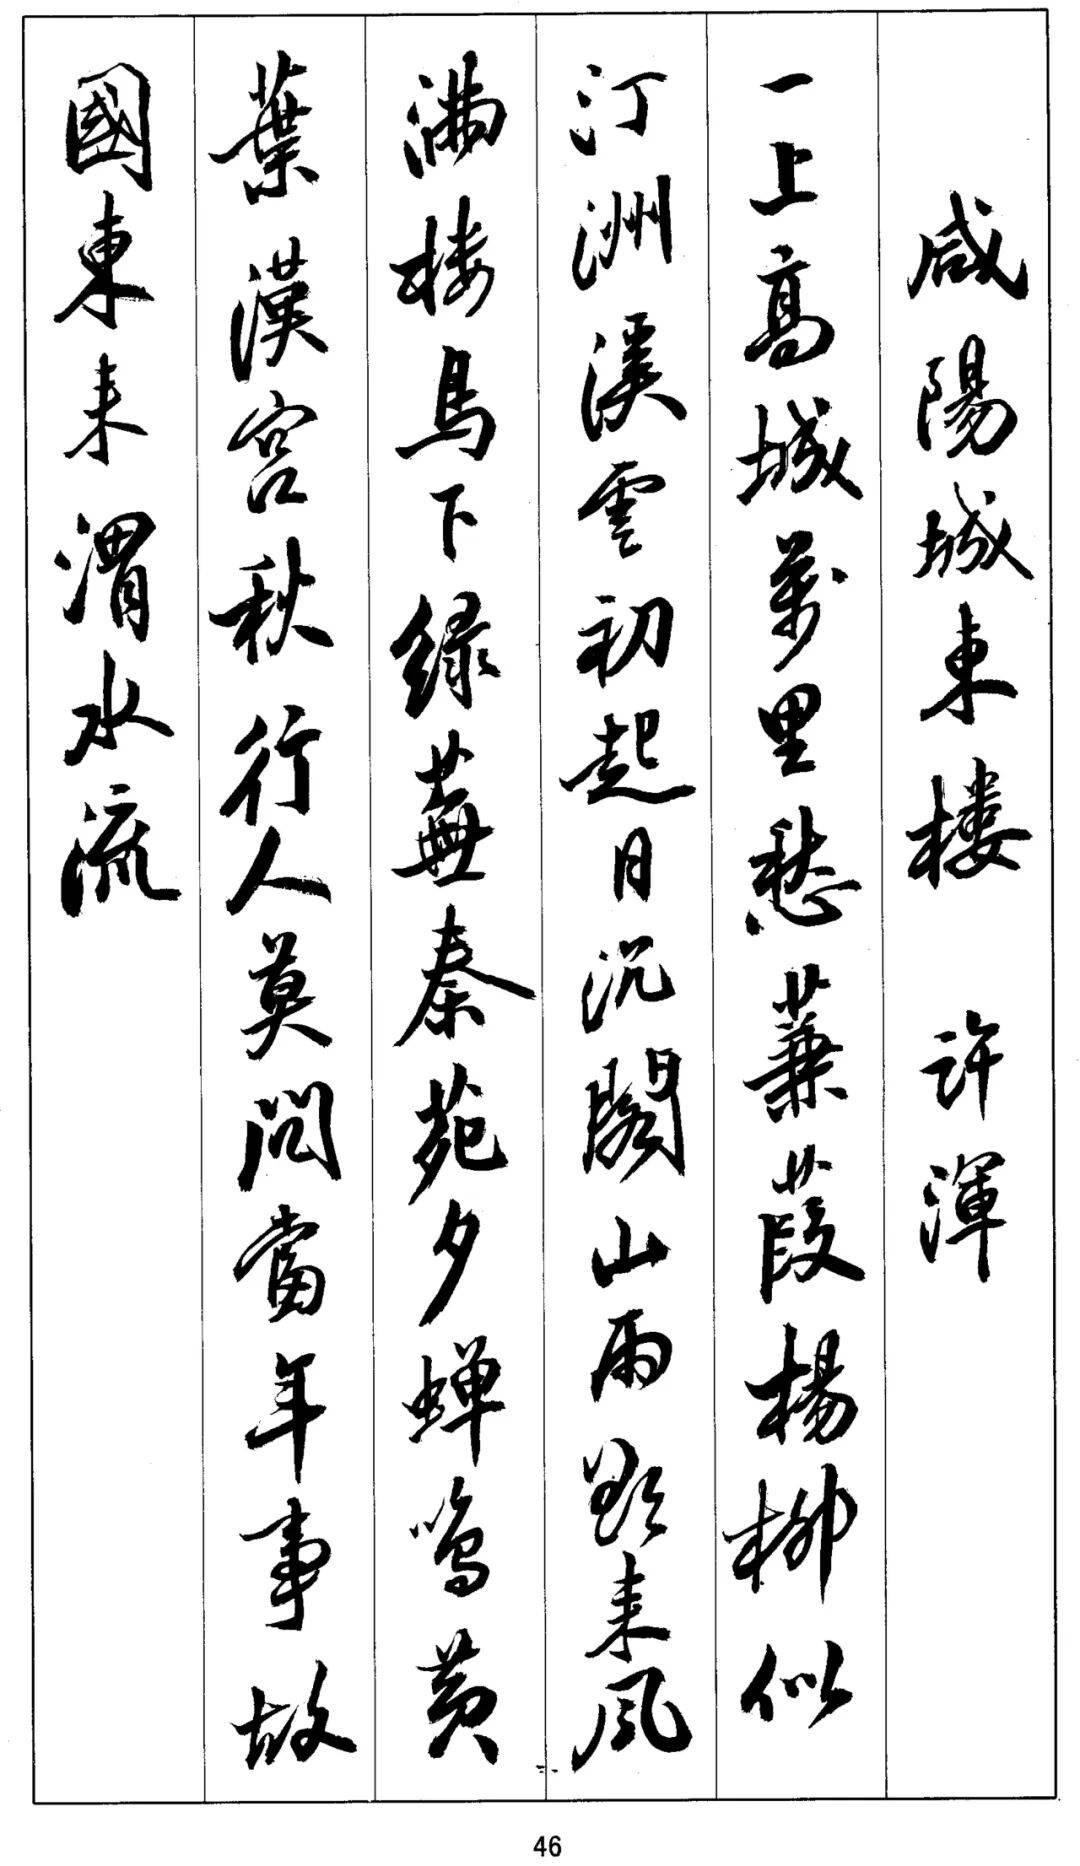 咸陽城東樓 許渾
一上高城萬里愁蒹葭楊柳似
汀洲溪雲初起日沉閣山雨欲来風
滿楼鳥下绿蕪秦苑夕蝉鸣黄
葉漢宫秋行人莫问當年事故
國東来渭水流
46